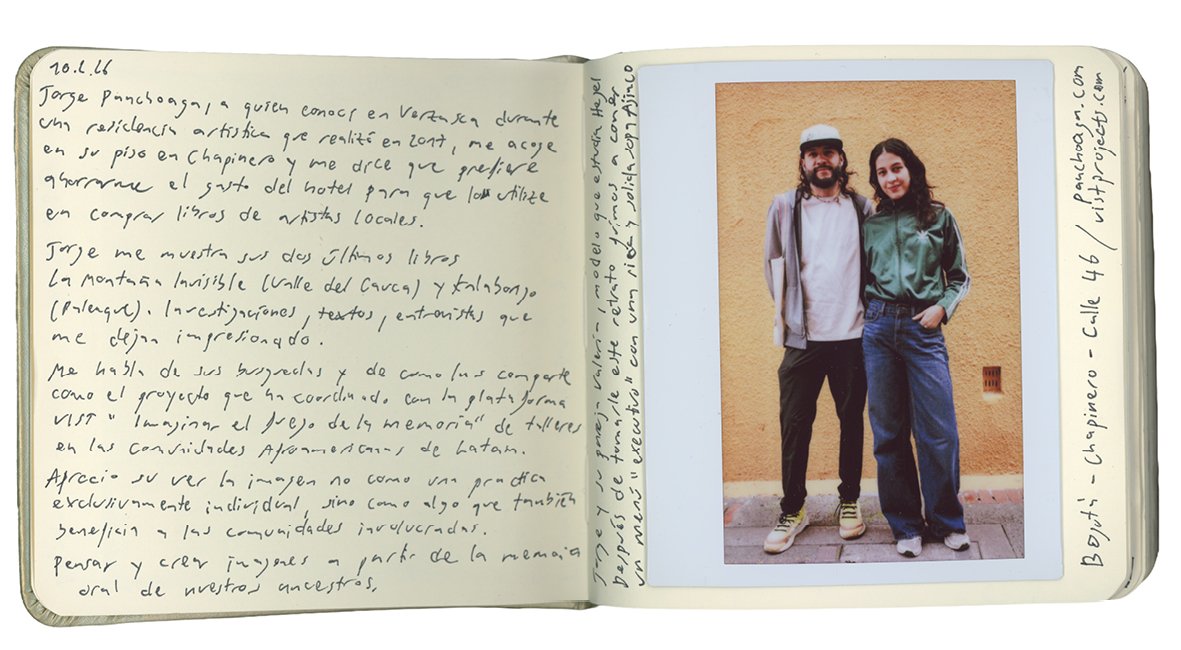 10.2.26
Jorge Panchoaga, a quien conocí en Verzasca durante
una residencia artistica que realizó en 2017, me acoge
en su piso en Chapinero y me dice que prefiere
ahorrarme el gasto del hotel para que lo utilize
en comprar libros de artistas locales.
Jorge me muestra sus dos últimos libros
La Montaña Invisible (Valle del Cauca) y Kalabongo
(Palenque). Investigaciones, textos, entrevistas que
me dejan impresionado.
Me habla de sus busquedas y de como las comparte
como el proyecto que ha coordinado con la plataforma
VIST "Imaginar el fuego de la memoria" de talleres
en las comunidades Afroamericanas de Latam.
Aprecio su ver la imagen no como una practica
exclusivamente individual, sino como algo que también
beneficia a las comunidades involucradas.
Pensar y crear imagenes a partir de la memoria
oral de nuestros ancestros.
Jorge y su pareja Valeria, modelo que estudia Hegel
Después de tomarle este retrato fuimos a comer
un menú "executivo" con una rica y solida sopa Ajiaco
Bogotá - Chapinero - Calle 46 / panchoaga.com
vistprojects.com